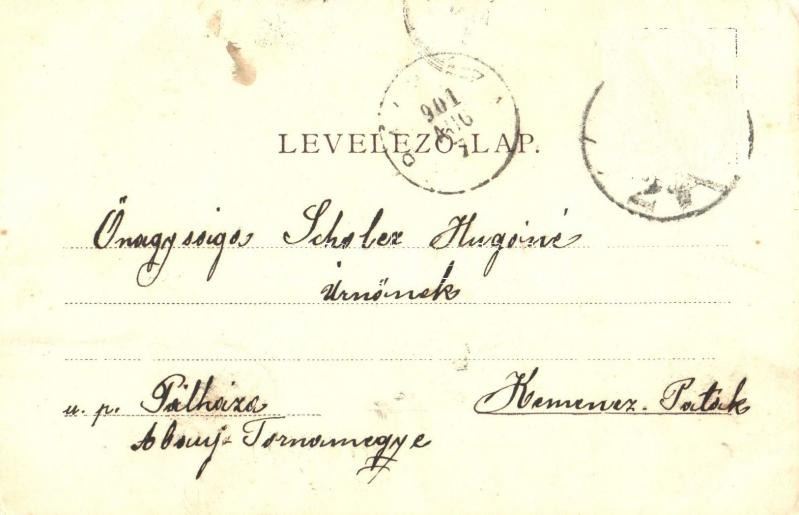 901
AUG
7
LEVELEZŐ-LAP.
Őnagysága Scholcz Hugóné
Úrnőnek
u. p. Pálháza
Kemencz-Patak
Abauj-Tornamegye